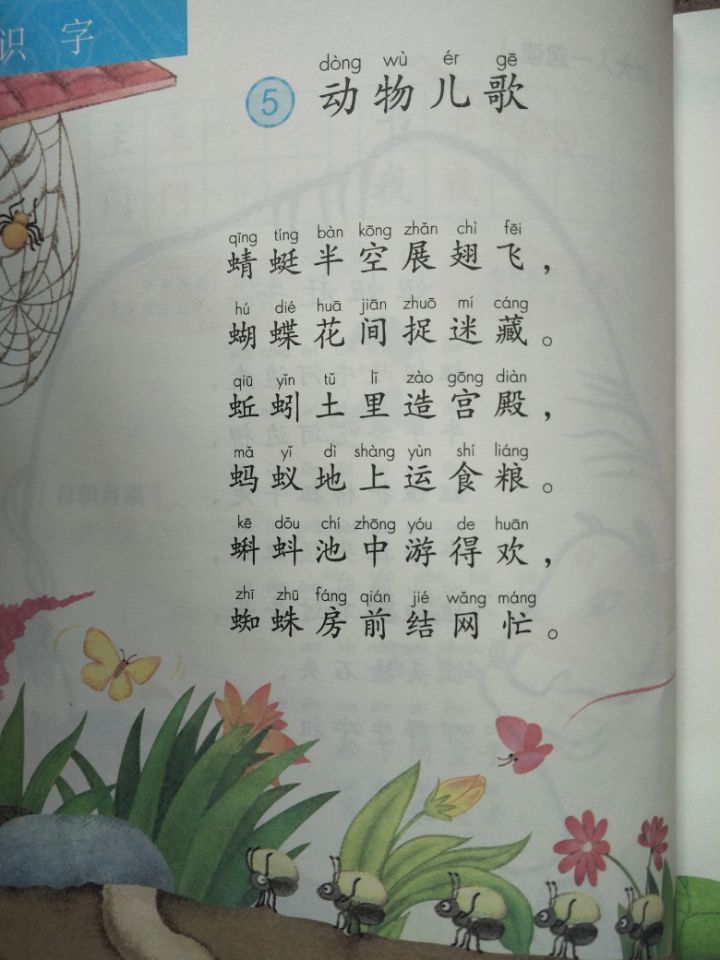 识 字
dòng wù ér gē
5 动物儿歌
qīng tíng bàn kōng zhǎn chì fēi
蜻蜓半空展翅飞，
hú dié huā jiān zhuō mí cáng
蝴蝶花间捉迷藏。
qiū yǐn tǔ lǐ zào gōng diàn
蚯蚓土里造宫殿，
mǎ yǐ dì shàng yùn shí liáng
蚂蚁地上运食粮。
kē dǒu chí zhōng yóu de huān
蝌蚪池中游得欢，
zhī zhū fáng qián jié wǎng máng
蜘蛛房前结网忙。